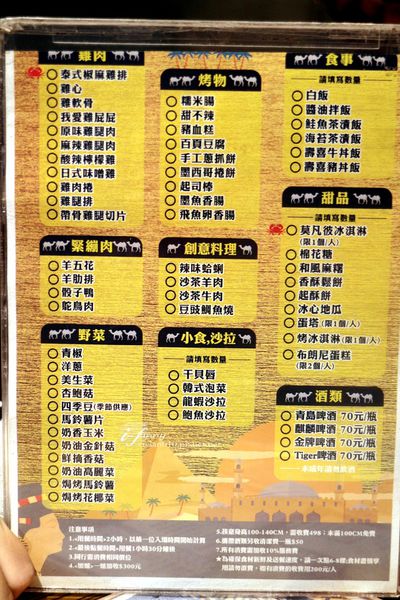 雞肉
泰式椒麻雞排
雞心
雞軟骨
我愛雞屁屁
原味雞腿肉
麻辣雞腿肉
酸辣檸檬雞
日式味噌雞
雞肉捲
雞腿排
帶骨雞腿切片
緊繃肉
羊五花
羊肋排
骰子鴨
鴕鳥肉
野菜
青椒
洋蔥
美生菜
杏鮑菇
四季豆(季節供應)
馬鈴薯片
奶香玉米
奶油金針菇
鮮摘香菇
奶油高麗菜
焗烤馬鈴薯
焗烤花椰菜
烤物
糯米腸
甜不辣
豬血糕
百頁豆腐
手工蔥抓餅
墨西哥捲餅
起司棒
墨魚香腸
飛魚卵香腸
創意料理
辣味蛤蜊
沙茶羊肉
沙茶牛肉
豆豉鯛魚燒
小食,沙拉
請填寫數量
干貝唇
韓式泡菜
龍蝦沙拉
鮑魚沙拉
食事
請填寫數量
白飯
醬油拌飯
鮭魚茶漬飯
海苔茶漬飯
壽喜牛丼飯
壽喜豬丼飯
甜品
請填寫數量
莫凡彼冰淇淋
(限1個/人)
棉花糖
和風麻糬
香酥鬆餅
起酥餅
冰心地瓜
蛋塔(限1個/人)
烤冰淇淋(限1個/人)
布朗尼蛋糕
(限2個/人)
酒類
青島啤酒 70元/瓶
麒麟啤酒 70元/瓶
金牌啤酒 70元/瓶
Tiger啤酒 70元/瓶
未成年請勿飲酒
注意事項
1.用餐時間2小時，以第一位入場時間開始計算
2.最後點餐時間，用餐1小時30分鐘後
3.同行需消費相同價位
5.孩童身高100-140CM，需收費498；未滿100CM免費
7.所有消費需加收10%服務費